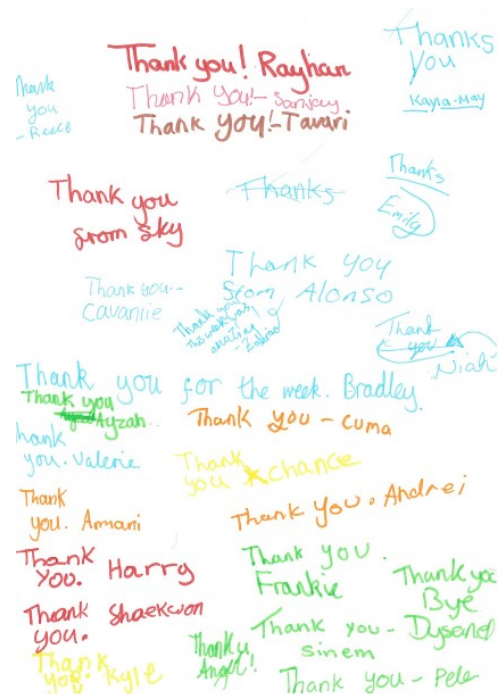 Thank you! Rayhan
Thank You!- Sanjay
Thank you!-Tavari
Thanks
You
Kayla-May
Thank
you
- Reece
Thank you
from Sky
Thanks
Thanks
Emily
Thank you
from Alonso
Thank you--
Thank you
This week was
amazing!
Thank
you
Niah
Thank you for the week. Bradley.
Thank you
Ayzah..
Thank you - Cuma
hank
you. Valerie
Thank
you chance
Thank
you. Armani
Thank you. Andrei
Thank
you. Harry
Thank you.
Frankie
Thank you
Bye
Thank Shaekwon
you.
Thank you-
sinem
Thank u
Angel!
Thank
you. Kyle
Thank you - Pele